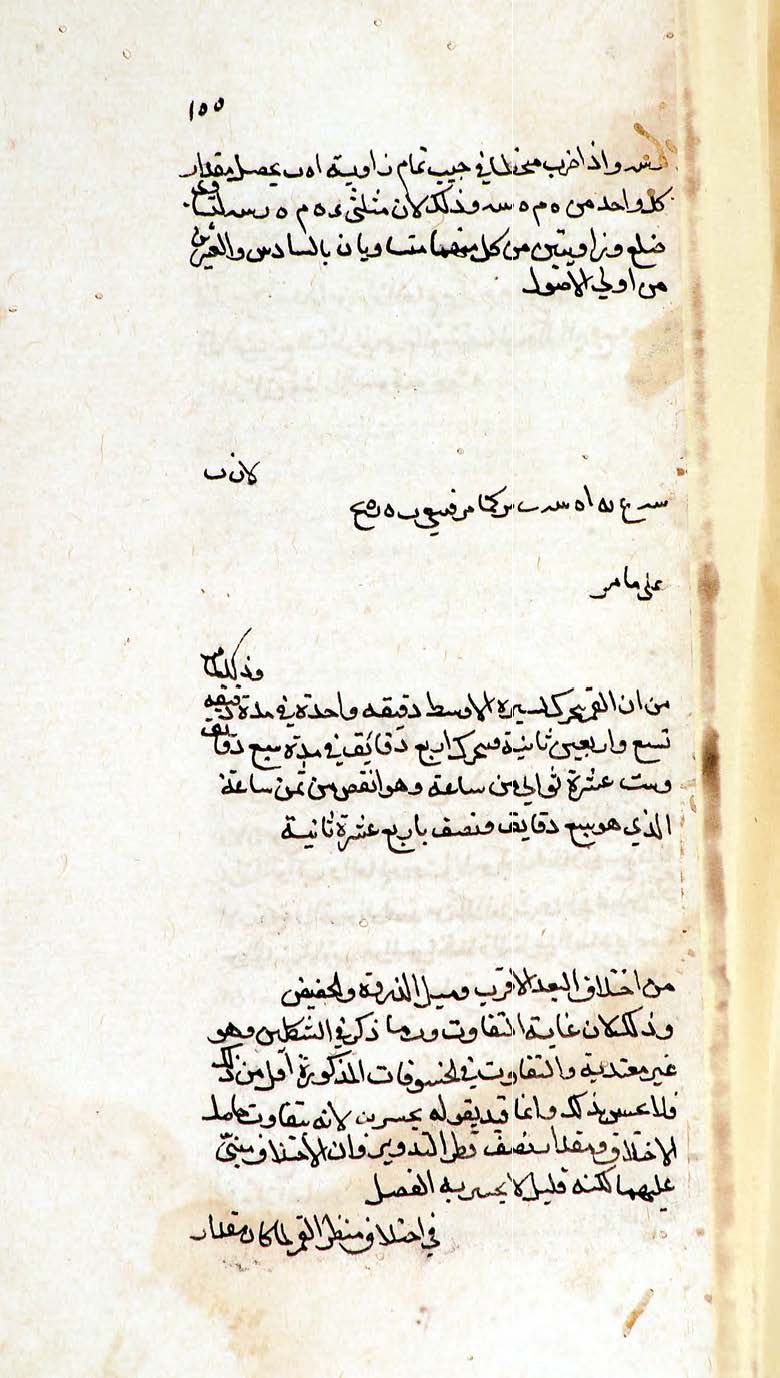 ١٥٥
رس واذا ضرب منحطا في جيب تمام زاوية اه ب يحصل مقدار
كل واحد من ه م ه سه وذلك لان مثلثي ه م ه رسه
ضلع وزاويتين من كل منهما متساويان بالسادس والعشرين
من اولي الاصول
كان ب
على ما مر
وذلك لما مر
من ان القمر يتحرك لمسيره الاوسط دقيقه واحدة في مدة دقيقه
تسع واربعين ثانية فيتحرك اربع دقايق في مدة سبع دقايق
وست عشرة ثوالي من ساعة وهو انقص من ثمن ساعة
الذي هو سبع دقايق ونصف باربع عشرة ثانية
من اختلاف البعد الاقرب وميل الذروة والحضيض
وذلك لان غاية التفاوت ما ذكر في الشكلين وهو
غير معتد به والتفاوت في الخسوفات المذكورة اقل من ذلك
فلا يحس بذلك وانما قيد بقوله بحس لانه يتفاوت حامل
الاختلاف ومقدار نصف قطر التدوير فان الاختلاف مبني
عليهما لكنه قليل لا يحس به الفصل
في اختلاف منظر القمر لما كان مقدار